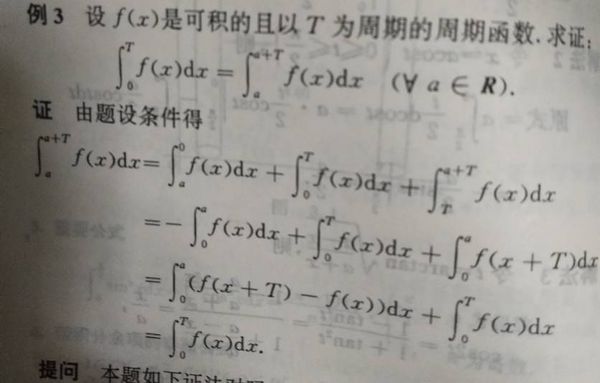 例3 设 f(x)是可积的且以 T 为周期的周期函数. 求证:
∫₀ᵀ f(x)dx = ∫ₐᵃ⁺ᵀ f(x)dx (∀ a ∈ R).
证 由题设条件得
∫ₐᵃ⁺ᵀ f(x)dx = ∫ₐ⁰ f(x)dx + ∫₀ᵀ f(x)dx + ∫_T^{a+T} f(x)dx
= −∫₀ᵃ f(x)dx + ∫₀ᵀ f(x)dx + ∫₀ᵃ f(x + T)dx
= ∫₀ᵃ (f(x + T) − f(x))dx + ∫₀ᵀ f(x)dx
= ∫₀ᵀ f(x)dx.
提问 本题如下证法对